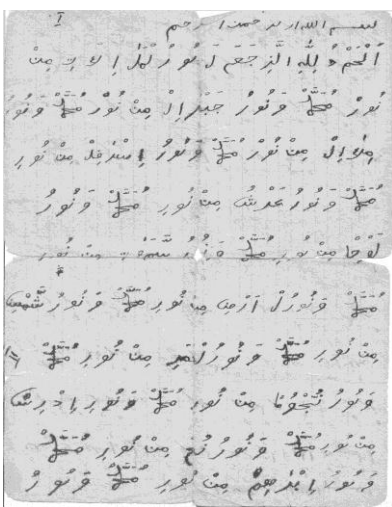 بسم الله ار رحمن ا رحيم
اَلْحَمْدُ لِلّٰهِ الَّذِ جَعَلَ نُورُ مِنْ
نُورْ مُحَمَّدْ وَنُورُ جَبْرَاِلْ مِنْ نُورْ مُحَمَّدْ وَنُورُ
مِكَاِلْ مِنْ نُورْ مُحَمَّدْ وَنُورُ اِسْرَفِلْ مِنْ نُورِ
مُحَمَّدْ وَنُورُ عَرْشُ مِنْ نُورِ مُحَمَّدْ وَنُورُ
لَوْحُ مِنْ نُورِ مُحَمَّدْ وَنُورُ مِنْ نُورِ
مُحَمَّدْ وَنُورُلْ اَرْضِ مِنْ نُورِ مُحَمَّدْ وَنُورُ شَّمْسِ
مِنْ نُورِ مُحَمَّدْ وَنُورُلْقَمَرِ مِنْ نُورِ مُحَمَّدْ
وَنُورُ نُّجُومَا مِنْ نُورِ مُحَمَّدْ وَنُورِ اِدْرِسْ
مِنْ نُورِ مُحَمَّدْ وَنُورُ نُحْ مِنْ نُورِ مُحَمَّدْ
وَنُورُ اِبْرَهِمْ مِنْ نُورِ مُحَمَّدْ وَنُورُ